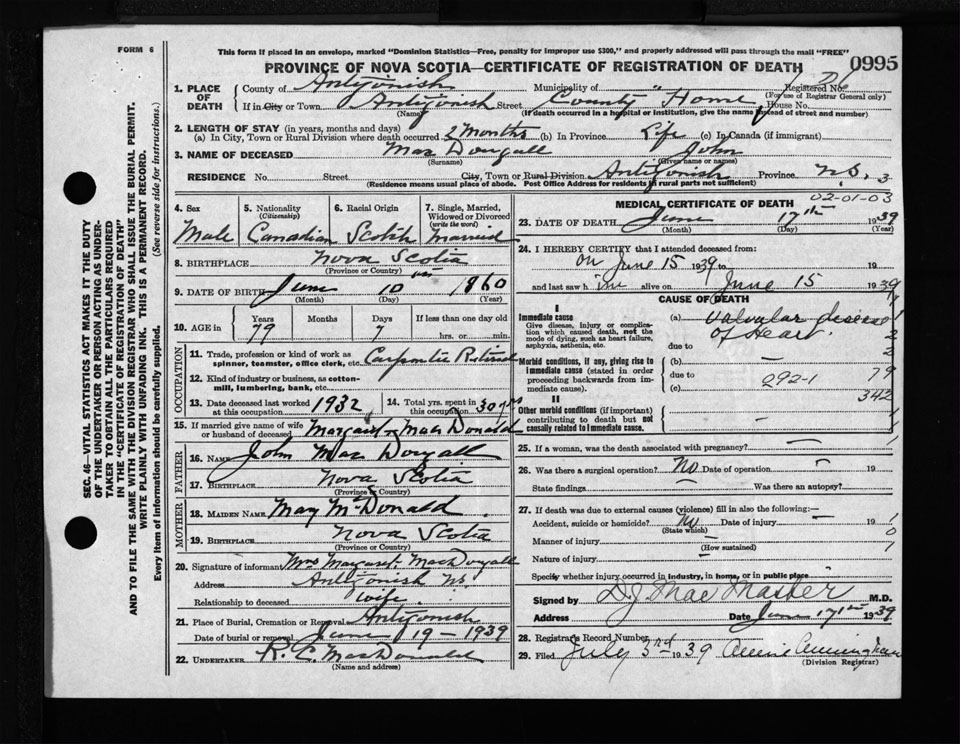 FORM 6
This form if placed in an envelope, marked "Dominion Statistics—Free, penalty for improper use $300," and properly addressed will pass through the mail "FREE"
PROVINCE OF NOVA SCOTIA—CERTIFICATE OF REGISTRATION OF DEATH
0995
1. PLACE OF DEATH
County of Antigonish Municipality of " Registered No.
(For use of Registrar General only)
If in City or Town Antigonish Street County Home House No.
(Name) (If death occurred in a hospital or institution, give the name instead of street and number)
2. LENGTH OF STAY (in years, months and days)
(a) In City, Town or Rural Division where death occurred 2 months (b) In Province Life (c) In Canada (if immigrant)
3. NAME OF DECEASED Mac Dougall John
(Surname) (Given name or names)
RESIDENCE No. Street City, Town or Rural Division Antigonish Province N.S. 3
(Residence means usual place of abode. Post Office Address for residents in rural parts not sufficient)
4. Sex Male
5. Nationality (Citizenship) Canadian
6. Racial Origin Scotch
7. Single, Married, Widowed or Divorced (write the word) Married
8. BIRTHPLACE Nova Scotia
(Province or Country)
9. DATE OF BIRTH June 10 1860
(Month) (Day) (Year)
10. AGE in Years Months Days If less than one day old
79 7 hrs. or min.
OCCUPATION
11. Trade, profession or kind of work as spinner, teamster, office clerk, etc. Carpenter Retired
12. Kind of industry or business, as cotton-mill, lumbering, bank, etc.
13. Date deceased last worked at this occupation 1932
14. Total yrs. spent in this occupation 30 yrs
15. If married give name of wife or husband of deceased Margaret Mac Donald
FATHER
16. NAME John Mac Dougall
17. BIRTHPLACE Nova Scotia
(Province or Country)
MOTHER
18. MAIDEN NAME May McDonald
19. BIRTHPLACE Nova Scotia
(Province or Country)
20. Signature of informant Mrs Margaret MacDougall
Address Antigonish NS
Relationship to deceased wife
21. Place of Burial, Cremation or Removal Antigonish
Date of burial or removal June 19 - 1939
22. UNDERTAKER R. C. MacDonald
(Name and address)
MEDICAL CERTIFICATE OF DEATH
02-01-03
23. DATE OF DEATH June 17th 1939
(Month) (Day) (Year)
24. I HEREBY CERTIFY that I attended deceased from:
on June 15 1939 to 19
and last saw him alive on June 15 1939
CAUSE OF DEATH
I
Immediate cause
Give disease, injury or complication which caused death, not the mode of dying, such as heart failure, asphyxia, asthenia, etc.
(a) Valvular disease of Heart.
due to
Morbid conditions, if any, giving rise to immediate cause (stated in order proceeding backwards from immediate cause).
(b) —
due to 79
(c) 292-1
342
II
Other morbid conditions (if important) contributing to death but not causally related to immediate cause.
25. If a woman, was the death associated with pregnancy?
26. Was there a surgical operation? No Date of operation — 19
State findings — Was there an autopsy?
27. If death was due to external causes (violence) fill in also the following:—
Accident, suicide or homicide? No Date of injury — 19
(State which)
Manner of injury —
(How sustained)
Nature of injury —
Specify whether injury occurred in industry, in home, or in public place
Signed by D. J. MacMaster M.D.
Address Date June 17th 1939
28. Registrar's Record Number
29. Filed July 3rd 1939 Annie Cunningham
(Division Registrar)
SEC. 46—VITAL STATISTICS ACT MAKES IT THE DUTY
OF THE UNDERTAKER OR PERSON ACTING AS UNDER-
TAKER TO OBTAIN ALL THE PARTICULARS REQUIRED
IN THE "CERTIFICATE OF REGISTRATION OF DEATH"
AND TO FILE THE SAME WITH THE DIVISION REGISTRAR WHO SHALL ISSUE THE BURIAL PERMIT.
WRITE PLAINLY WITH UNFADING INK. THIS IS A PERMANENT RECORD.
Every item of information should be carefully supplied. (See reverse side for instructions.)